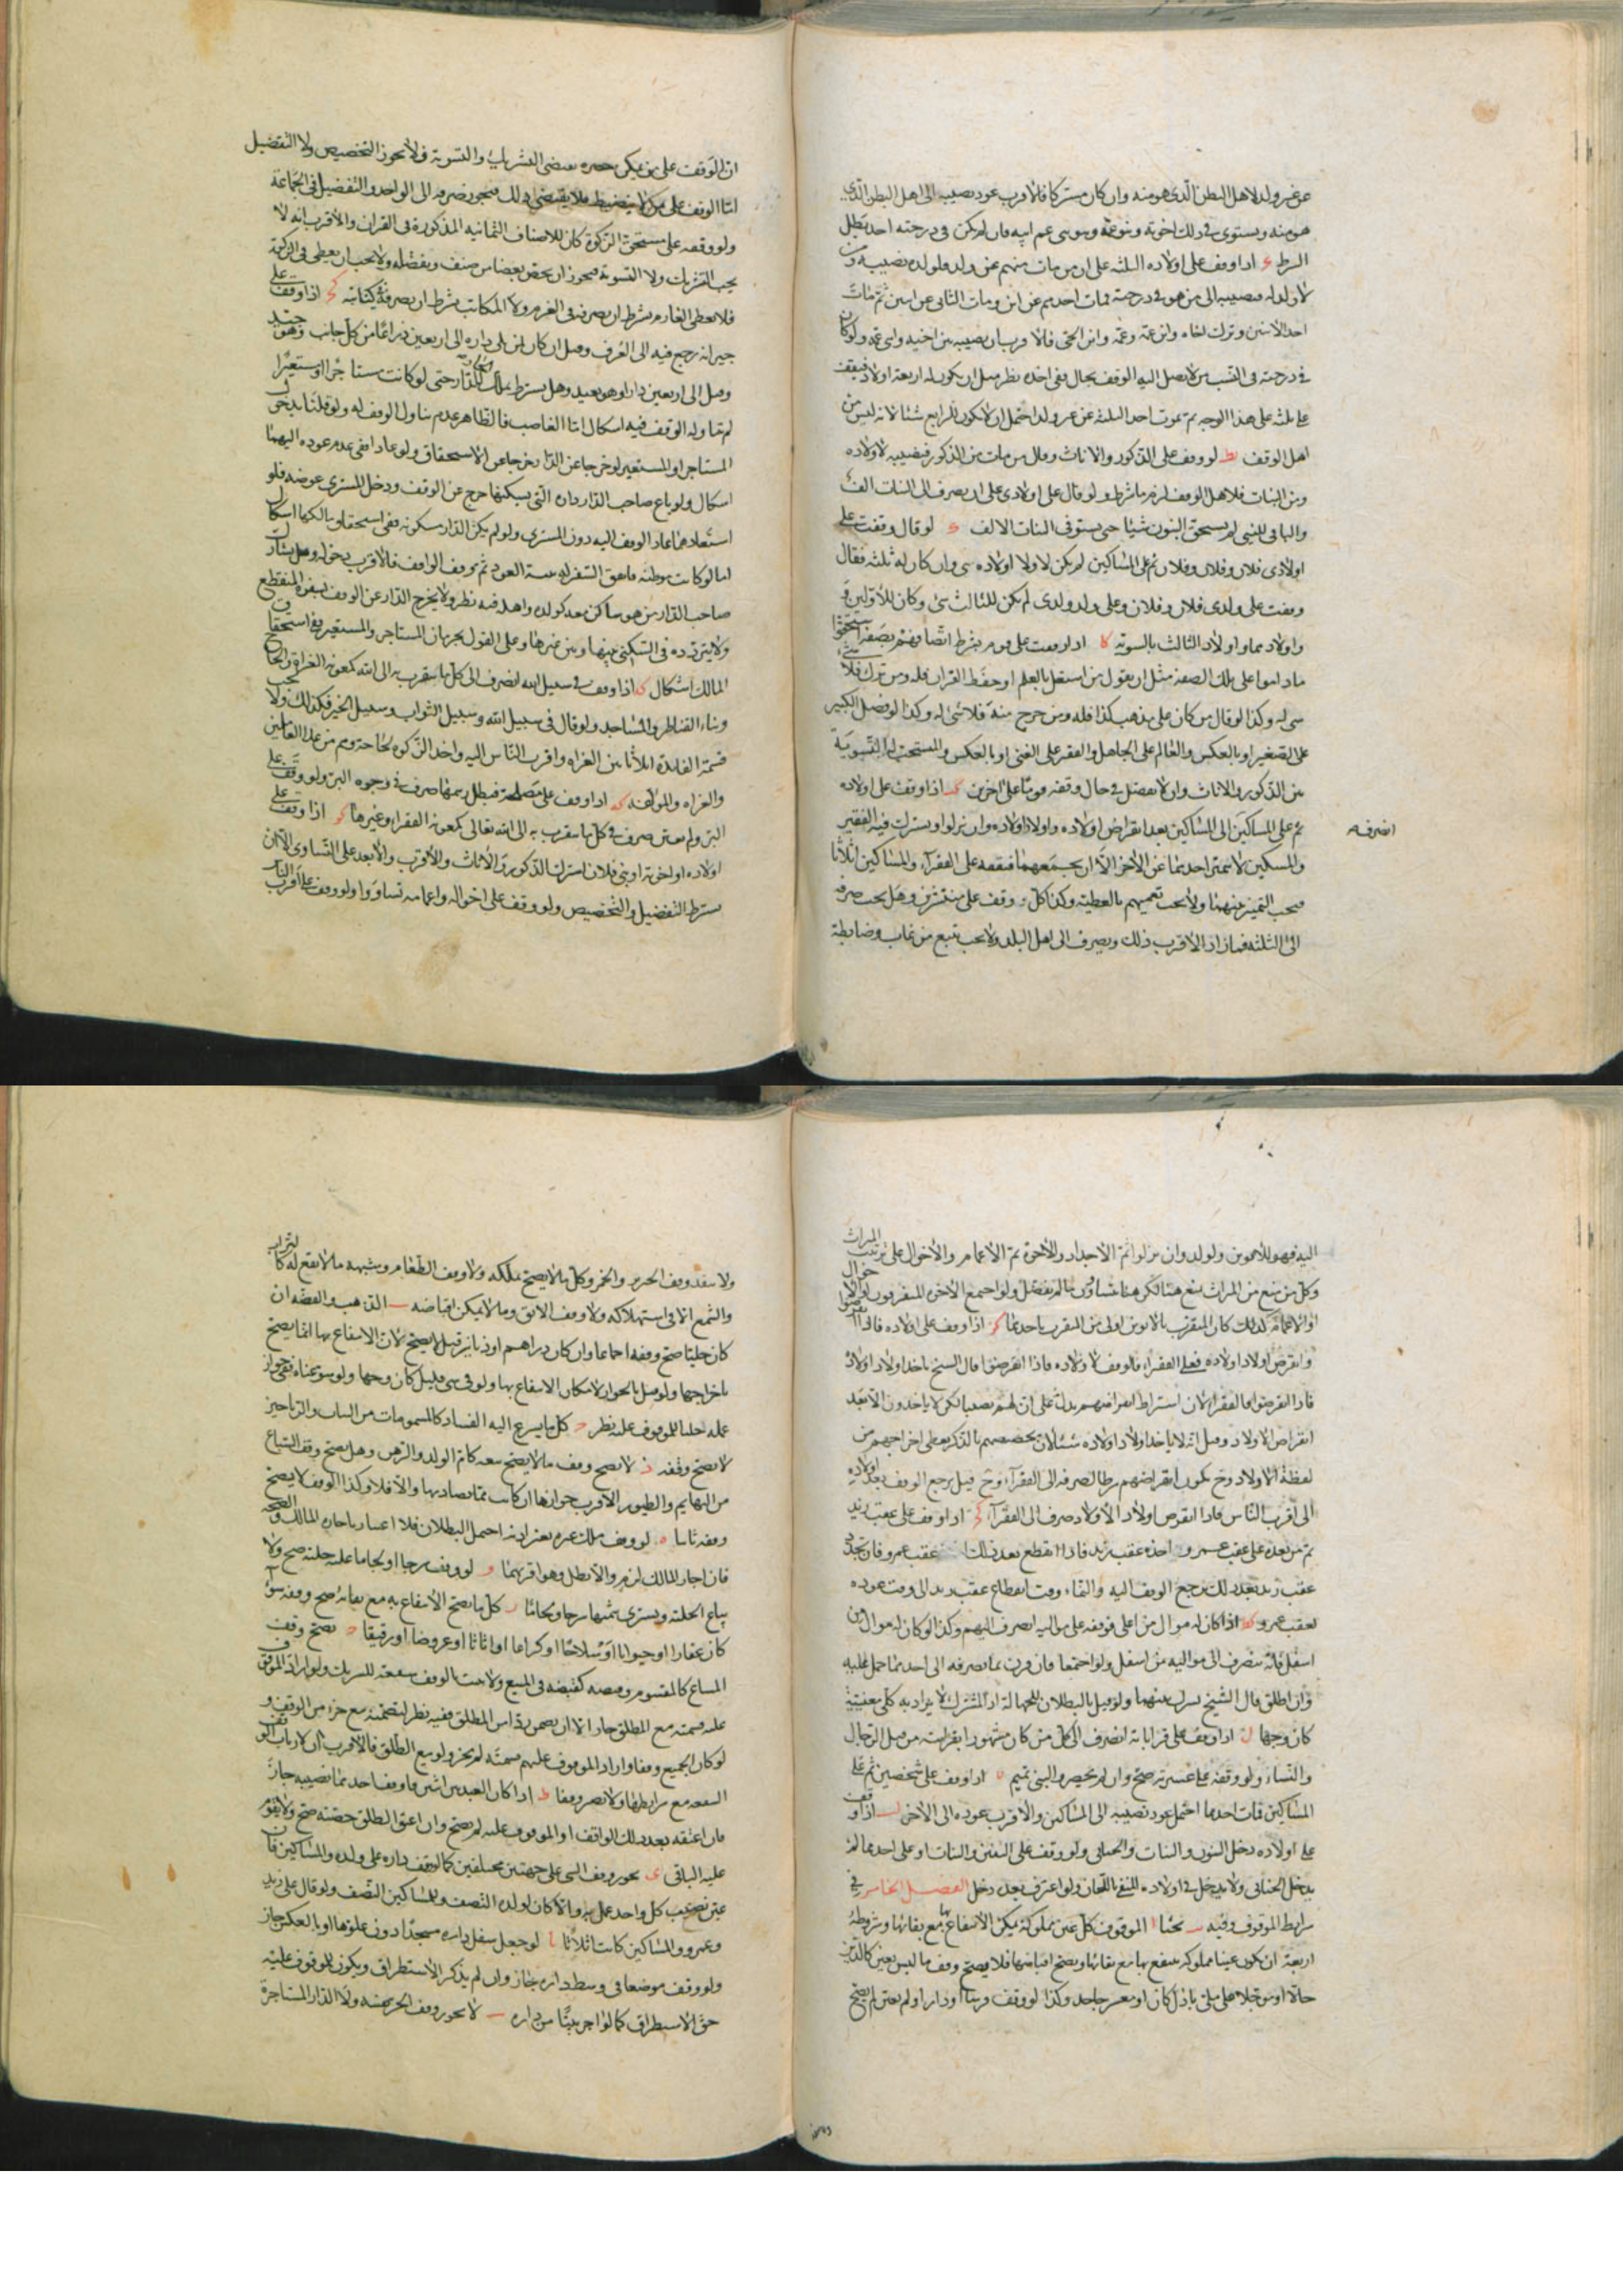 عن غير ولد لاهل البطن الذى هو منه وان كان مشتركا فالاقرب عود نصيبه الى اهل البطن الذى
هو منه ويستوى فى ذلك اخوته وبنو عمه وبنو بنى عم ابيه فان لم يكن فى درجته احد بطل
الشرط اذا وقف على اولاده الثلثة على ان من مات منهم عن ولد فلولده نصيبه ومن
لا ولد له فنصيبه الى من هو فى درجته فمات احدهم عن ابن ومات الثانى عن ابنين ثم مات
احد الابنين وترك اخاه وابن عمه وعمه وابن الحى فالاقرب ان نصيبه بين اخيه وابنى عمه ولو كان
فى درجته فى النسب من لا يصل اليه الوقف بحال ففى اخذه نظر مثل ان يكون له اربعة اولاد فيقف
على ثلثة على هذا الوجه ثم يموت احد الثلثة عن غير ولد احتمل ان لا يكون للرابع شئا لانه ليس من
اهل الوقف يط لو وقف على الذكور والاناث وقال من مات من الذكور فنصيبه لاولاده
ومن البنات فلاهل الوقف لزم ما شرط ولو قال على اولادى على ان يصرف الى البنات الف
والباقى للبنين لم يستحق البنون شيئا حتى يستوفى البنات الالف لو قال وقفت على
اولادى فلان وفلان وفلان ثم على المساكين لم يكن لاولاد اولاده شى وان كان له ثلثة فقال
وقفت على ولدى فلان وفلان وعلى ولد ولدى لم يكن للثالث شى وكان للاولين و
واولادهما واولاد الثالث بالسوية كا اذا وقف على قوم بشرط اتصافهم بصفة استحقوا
ما داموا على تلك الصفة مثل ان يقول من اشتغل بالعلم او حفظ القران فله ومن ترك فلا
شى له وكذا لو قال من كان على مذهب كذا فله ومن خرج منه فلا شئ له وكذا لو فضل الكبير
على الصغير او بالعكس والعالم على الجاهل والفقير على الغنى او بالعكس والمستحب له التسوية
بين الذكور والاناث وان لا يفضل فى حال وقفه قوما على اخرين كب اذا وقف على اولاده
ثم على المساكين الى المساكين بعد انقراض اولاده واولاد اولاده وان نزلوا ويشترك فيه الفقير
انصرف
والمسكين لا يتميز احدهما عن الاخر الا ان يجمعهما فيقفه على الفقراء والمساكين اثلاثا
فيجب التمييز بينهما ولا يجب تعميمهم بالعطية وكذا كل وقف على منتشر وهل يجب صرفه
الى الثلثة فما زاد الاقرب ذلك ويصرف الى اهل البلد ولا يجب تتبع من غاب وضابطه
ان الوقف على من يمكن حصره يقتضى التشريك والتسوية فلا يجوز التخصيص ولا التفضيل
اما الوقف على من لا ينضبط فلا يقتضى ذلك فيجوز صرفه الى الواحد والتفضيل فى الجماعة
ولو وقفه على مستحق الزكوة كان للاصناف الثمانيه المذكورة فى القران والاقرب انه لا
يجب التشريك ولا التسوية فيجوز ان يخص بعضا من صنف وبفضله ولا يجب ان يعطى فى الزكوة
فلا يعطى الغارم بشرط ان يصرفه فى الغرم ولا المكاتب بشرط ان يصرفه فى كتابته كج اذا وقف على
جيرانه رجع فيه الى العرف وقيل ان كان لمن يلى داره الى اربعين ذراعا من كل جانب وهو جيد
وقيل الى اربعين دارا وهو بعيد وهل يشترط ملك الدار حتى لو كانت مستاجرا او مستعيرا
لم يتناوله الوقف فيه اشكال اما الغاصب فالظاهر عدم تناول الوقف له ولو قلنا بدخول
المستاجر او المستعير لو خرجا عن الدار خرجا عن الاستحقاق ولو عادا ففى عدم عوده اليهما
اشكال ولو باع صاحب الدار داره التى يسكنها خرج عن الوقف ودخل المشترى عوضه فلو
استعادها عاد الوقف اليه دون المشترى ولو لم يكن الدار مسكونه ففى استحقاق مالكها اشكال
اما لو كانت موطنه فاتفق السفر له بنية العود ثم وقف الواقف فالاقرب دخوله وهل يشارك
صاحب الدار من هو ساكن معه كولده واهله فيه نظر ولا يخرج الدار عن الوقف بسفر المنقطع
ولا بتردده فى السكنى بينها وبين غيرها وعلى القول بحرمان المستاجر والمستعير ففى استحقاق
المالك اشكال كد اذا وقف فى سبيل الله انصرف الى كل ما يتقرب به الى الله كمعونه الغزاة والحاج
وبناء القناطر والمساجد ولو قال فى سبيل الله وسبيل الثواب وسبيل الخير فكذلك ولا يجب
قسمة الفائدة اثلاثا بين الغزاه واقرب الناس اليه واخذ الزكوة لحاجته وهم من عدا العاملين
والغزاه والمؤلفه كه اذا وقف على مصلحة فبطل رسمها صرف فى وجوه البر ولو وقف على
البر ولم يعين صرف فى كل ما يتقرب به الى الله تعالى كمعونه الفقراء وغيرها كو اذا وقف على
اولاده او اخوته او بنى فلان اشترك الذكور والاناث والاقرب والابعد على التساوى الا ان
يشترط التفضيل والتخصيص ولو وقف على اخواله واعمامه تساووا ولو وقف على اقرب الناس
اليه فهو للابوين والولد وان نزلوا ثم الاجداد والاخوة ثم الاعمام والاخوال على ترتيب الميراث
وكل من منع من الميراث منع هنا لكن هنا يتساوون ما لم يفضل ولو اجتمع الاخوة المتفرقون او الاخوال
او الاعمام كذلك كان المتقرب بالابوين اولى من المتقرب باحدهما كز اذا وقف على اولاده فاذا انقرضوا
وانقرض اولاد اولاده فعلى الفقراء فالوقف لاولاده فاذا انقرضوا قال الشيخ ياخذ اولاد اولاده
فاذا انقرضوا فالفقراء لان اشتراط انقراضهم يدل على ان لهم نصيبا لكن لا ياخذون الا بعد
انقراض الاولاد وقيل انه لا ياخذ اولاد اولاده شئا لان تخصيصهم بالذكر يعطى اخراجهم من
لفظة الاولاد وح يكون انقراضهم شرطا لصرفه الى الفقراء وح قيل يرجع الوقف بعد اولاده
الى اقرب الناس فاذا انقرض اولاد الاولاد صرف الى الفقراء كح اذا وقف على عقب زيد
ثم من بعده على عقب عمرو اخذه عقب زيد فاذا انقطع بعد ذلك عقب عمرو فان تجدد
عقب زيد بعد ذلك رجع الوقف اليه والنماء وقت انقطاع عقب زيد الى وقت عوده
لعقب عمرو كط اذا كان له موال من اعلى فوقفه على مواليه انصرف اليهم وكذا لو كان له موال من
اسفل فانه ينصرف الى مواليه من اسفل ولو اجتمعا فان قرن بما يصرفه الى احدهما حمل عليه
وان اطلق قال الشيخ يشرك بينهما ولو قيل بالبطلان للجهالة اذ المشترك لا يراد به كلى معنييه
كان وجها ل اذا وقف على قراباته انصرف الى كل من كان مشهورا بقرابته من قبل الرجال
والنساء ولو وقفه على عشيرته صح وان لم يحصروا كبنى تميم اذا وقف على شخصين ثم على
المساكين فمات احدهما احتمل عود نصيبه الى المساكين والاقرب عوده الى الاخر لب اذا وقف
على اولاده دخل البنون والبنات والخناثى ولو وقف على البنين والبنات او على احدهما لم
يدخل الخناثى ولا يدخل فى اولاده المنفى باللعان ولو اعترف بعد دخل الفصل الخامس فى
شرايط الموقوف وفيه بحثا ا الموقوف كل عين مملوكة يمكن الانتفاع بها مع بقائها وشروطه
اربعة ان يكون عينا مملوكه ينتفع بها مع بقائها ويصح اقباضها فلا يصح وقف ما ليس بعين كالدين
حالا او مؤجلا على ملى باذل كان او معسر جاحد وكذا لو وقف فرسا او دارا ولم يعين لم يصح
ولا ينفذ وقف الحر والخمر وكل ما لا يصح تملكه ولا وقف الطعام وشبهه مما لا نفع له كالشراب
والشمع الا فى استهلاكه ولا وقف الابق وما لا يمكن اقباضه ب الذهب والفضه ان
كان حليا صح وقفه اجماعا وان كان دراهم او دنانير قيل لا يصح لان الانتفاع بها انما يصح
باخراجها ولو قيل بالجواز لامكان الانتفاع بها ولو فى شى قليل كان وجها ولو سوغناه ففى جواز
عمله حليا للموقوف عليه نظر ج كل ما يسرع اليه الفساد كالمشمومات من النبات والرياحين
لا يصح وقفه د لا يصح وقف ما لا يصح بيعه كام الولد والرهن وهل يصح وقف السباع
من البهايم والطيور الاقرب جوازها ان كانت مما يصاد بها والا فلا وكذا الوقف لا يصح
وقفه ثانيا ه لو وقف ملك غيره بغير اذنه احتمل البطلان فلا اعتبار باجازه المالك والصحه
فان اجاز المالك لزم والا بطل وهو اقربهما و لو وقف سرجا او لجاما عليه حليته صح ولا
يباع الحلية ويشترى بثمنها سرجا ولجاما ز كل ما يصح الانتفاع به مع بقائه صح وقفه سواء
كان عقارا او حيوانا او سلاحا او كراعا او اثاثا او عروضا او رقيقا ح يصح وقف
المشاع كالمقسوم وقبضه كقبضه فى المبيع ولا يثبت بالوقف شفعة للشريك ولو اراد الموقوف
عليه قسمته مع المطلق جاز الا ان يضمن رد اس المطلق ففيه نظر لتضمنه بيع جزء من الوقف و
لو كان الجميع وقفا واراد الموقوف عليهم قسمته لم يجز ولو بيع الطلق فالاقرب ان لارباب الوقف
الشفعه مع شرايطها ولا يصير وقفا ط اذا كان العبد بين اثنين فاوقف احدهما نصيبه جاز
فان اعتقه بعد ذلك الواقف او الموقوف عليه لم يصح وان اعتق الطلق حصته صح ولا يقوم
عليه الباقى ى يجوز وقف الشى على جهتين مختلفين كما لو وقف داره على ولده والمساكين فان
عين نصيب كل واحد عمل به والا كان لولده النصف وللمساكين النصف ولو قال على زيد
وعمرو والمساكين كانت اثلاثا يا لو جعل سفل داره مسجدا دون علوها او بالعكس جاز
ولو وقف موضعا فى وسط داره جاز وان لم يذكر الاستطراق ويكون للموقوف عليه
حق الاستطراق كما لو اجر بيتا من داره يب لا يجوز وقف الحر نفسه ولا الدار المستاجرة